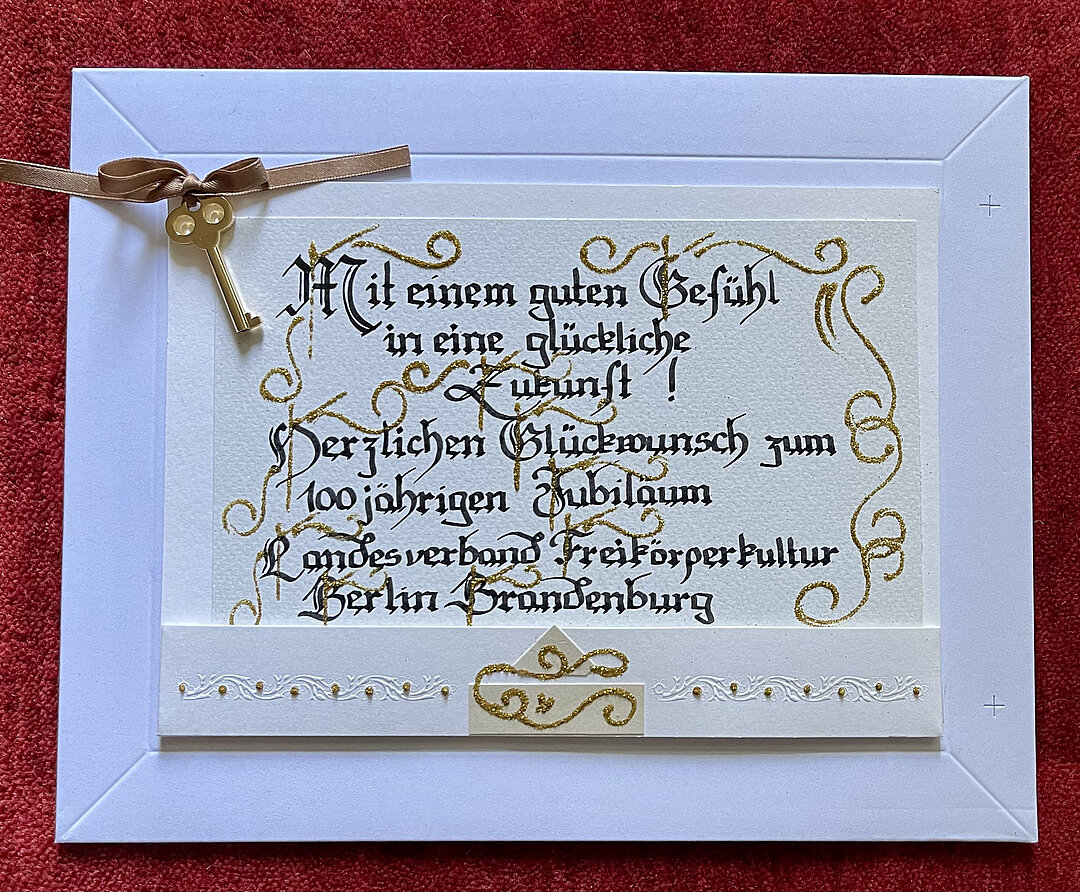 Mit einem guten Gefühl
in eine glückliche
Zukunft !
Herzlichen Glückwunsch zum
100 jährigen Jubiläum
Landesverband Freikörperkultur
Berlin Brandenburg